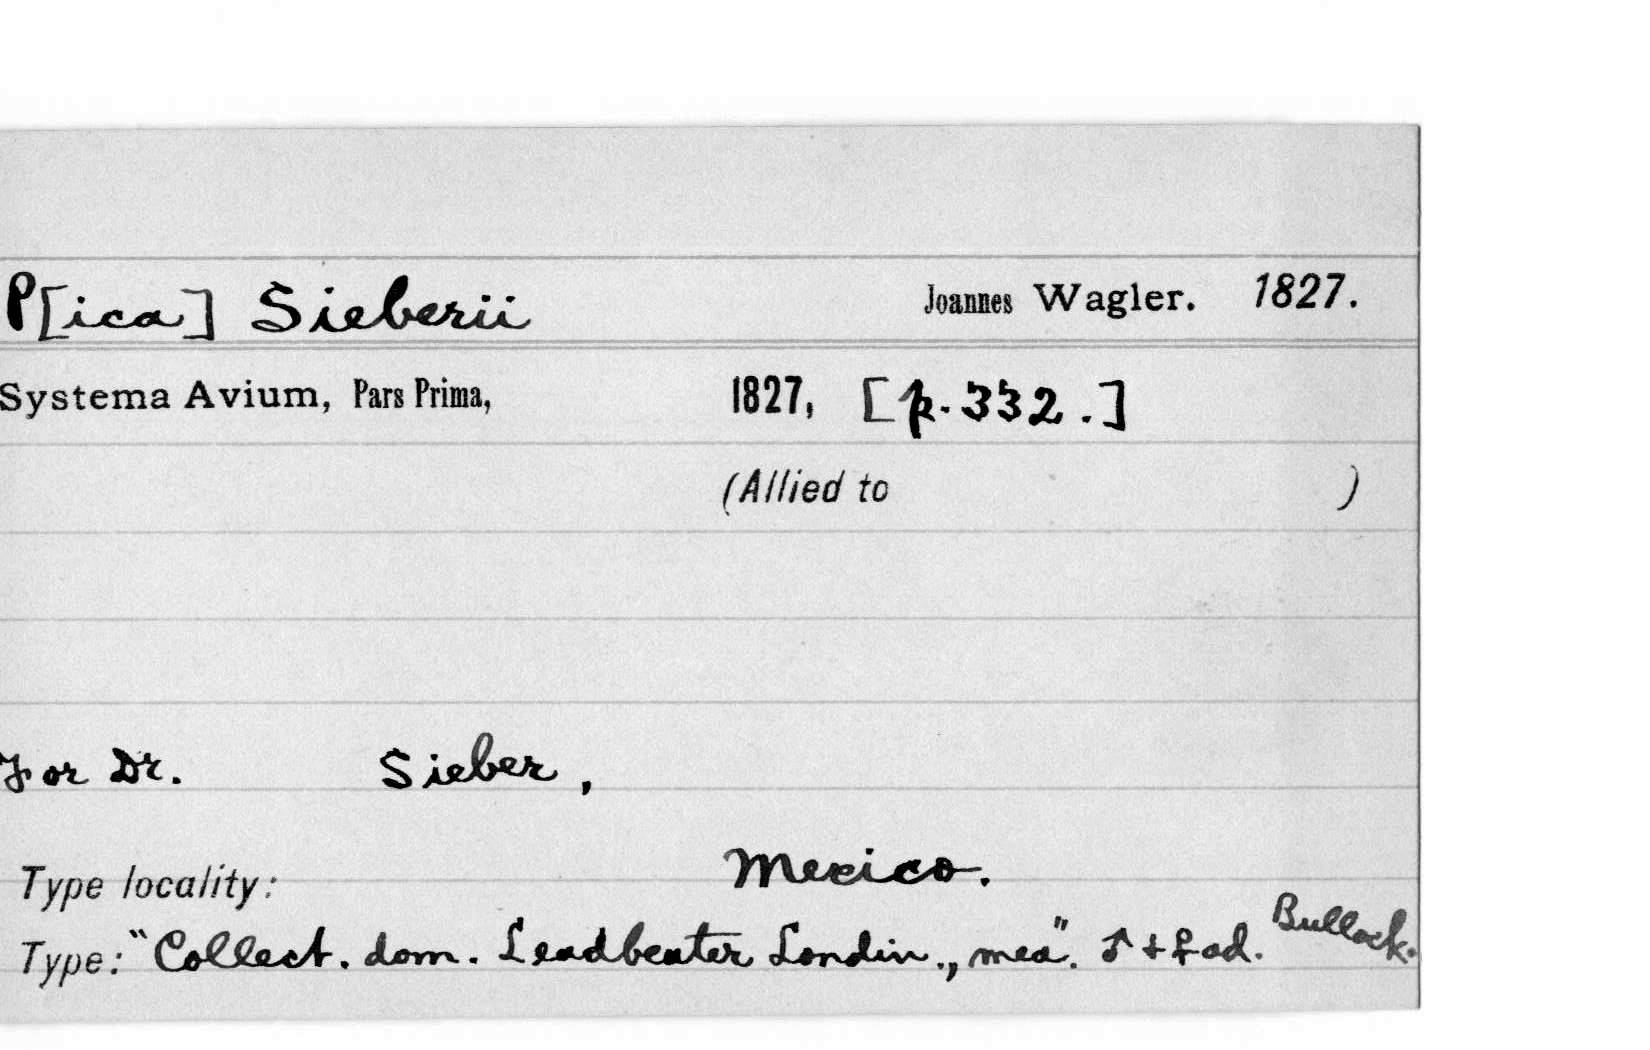 P[ica] Sieberii Joannes Wagler. 1827.
Systema Avium, Pars Prima, 1827, [p. 332.]
(Allied to )
For Dr. Sieber,
Type locality: Mexico.
Type: "Collect. dom. Leadbeater Londin., mea". ♂ + ♀ ad. Bullock.